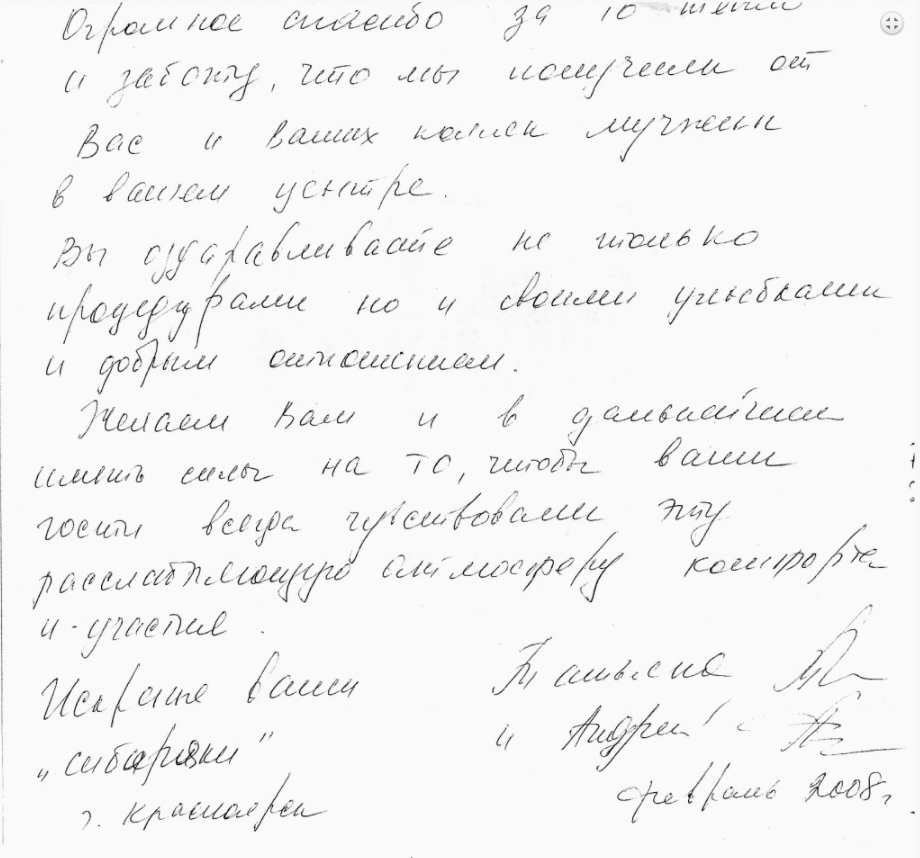 Огромное спасибо за то тепло
и заботу, что мы получили от
Вас и ваших коллег мужчин
в вашем центре.
Вы оздаравливаете не только
процедурами но и своими улыбками
и добрым отношением.
Желаем Вам и в дальнейшем
иметь силы на то, чтобы ваши
гости всегда чувствовали эту
расслабляющую атмосферу комфорта
и участия.
Искрене ваши Татьяна
„сибиряки" и Андрей
г. Красноярск февраль 2008г.